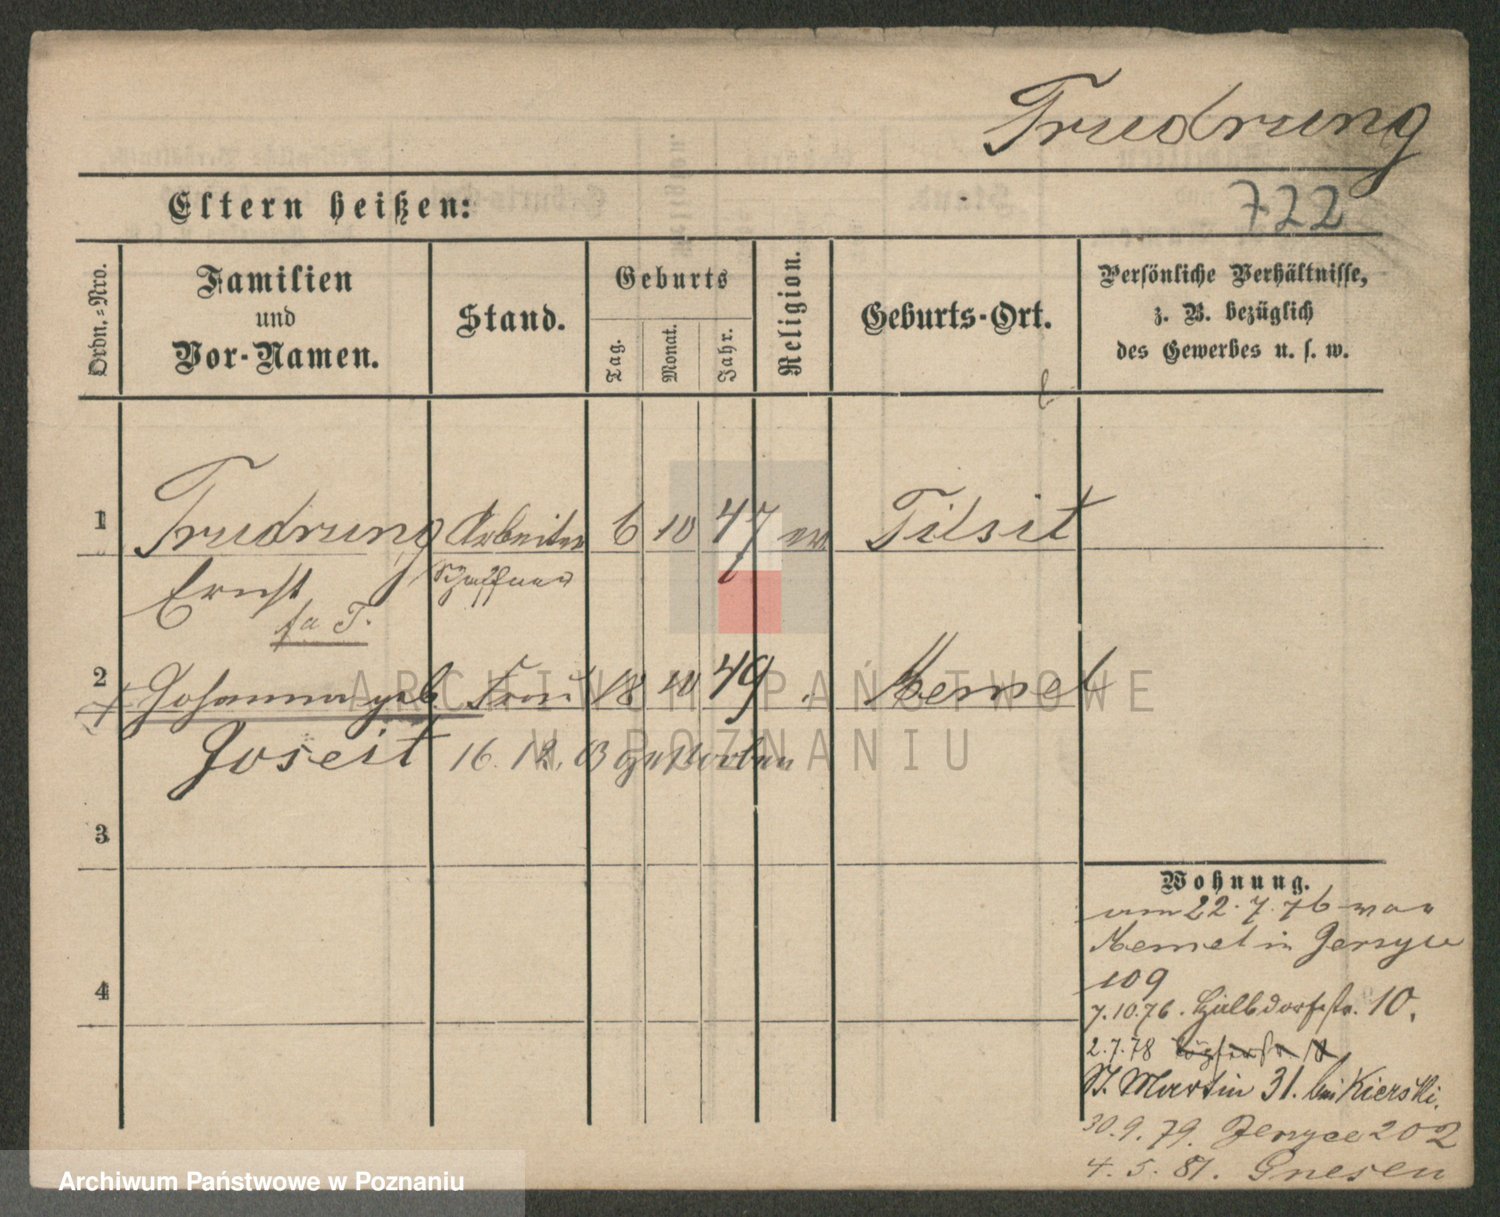 Trudrung
Eltern heißen:
722
Ordn.-Nro.
Familien
und
Vor-Namen.
Stand.
Geburts
Tag.
Monat.
Jahr.
Religion.
Geburts-Ort.
Persönliche Verhältnisse,
z. B. bezüglich
des Gewerbes u. s. w.
1 Trudrung Arbeiter 6 10 47 ev. Tilsit
Ernst Schaffner
2 Johanna geb. Frau 18 10 49 Memel
Joseit 16. 12. 03 gestorben
3
4
Wohnung.
am 22.7.76 von
Memel in Jerzyce
109
7.10.76. Halbdorfstr. 10.
2.7.78
St. Martin 31. bei Kierski.
30.9.79. Jerzyce 202
4.5.81. Gnesen
ARCHIWUM PAŃSTWOWE
W POZNANIU
Archiwum Państwowe w Poznaniu